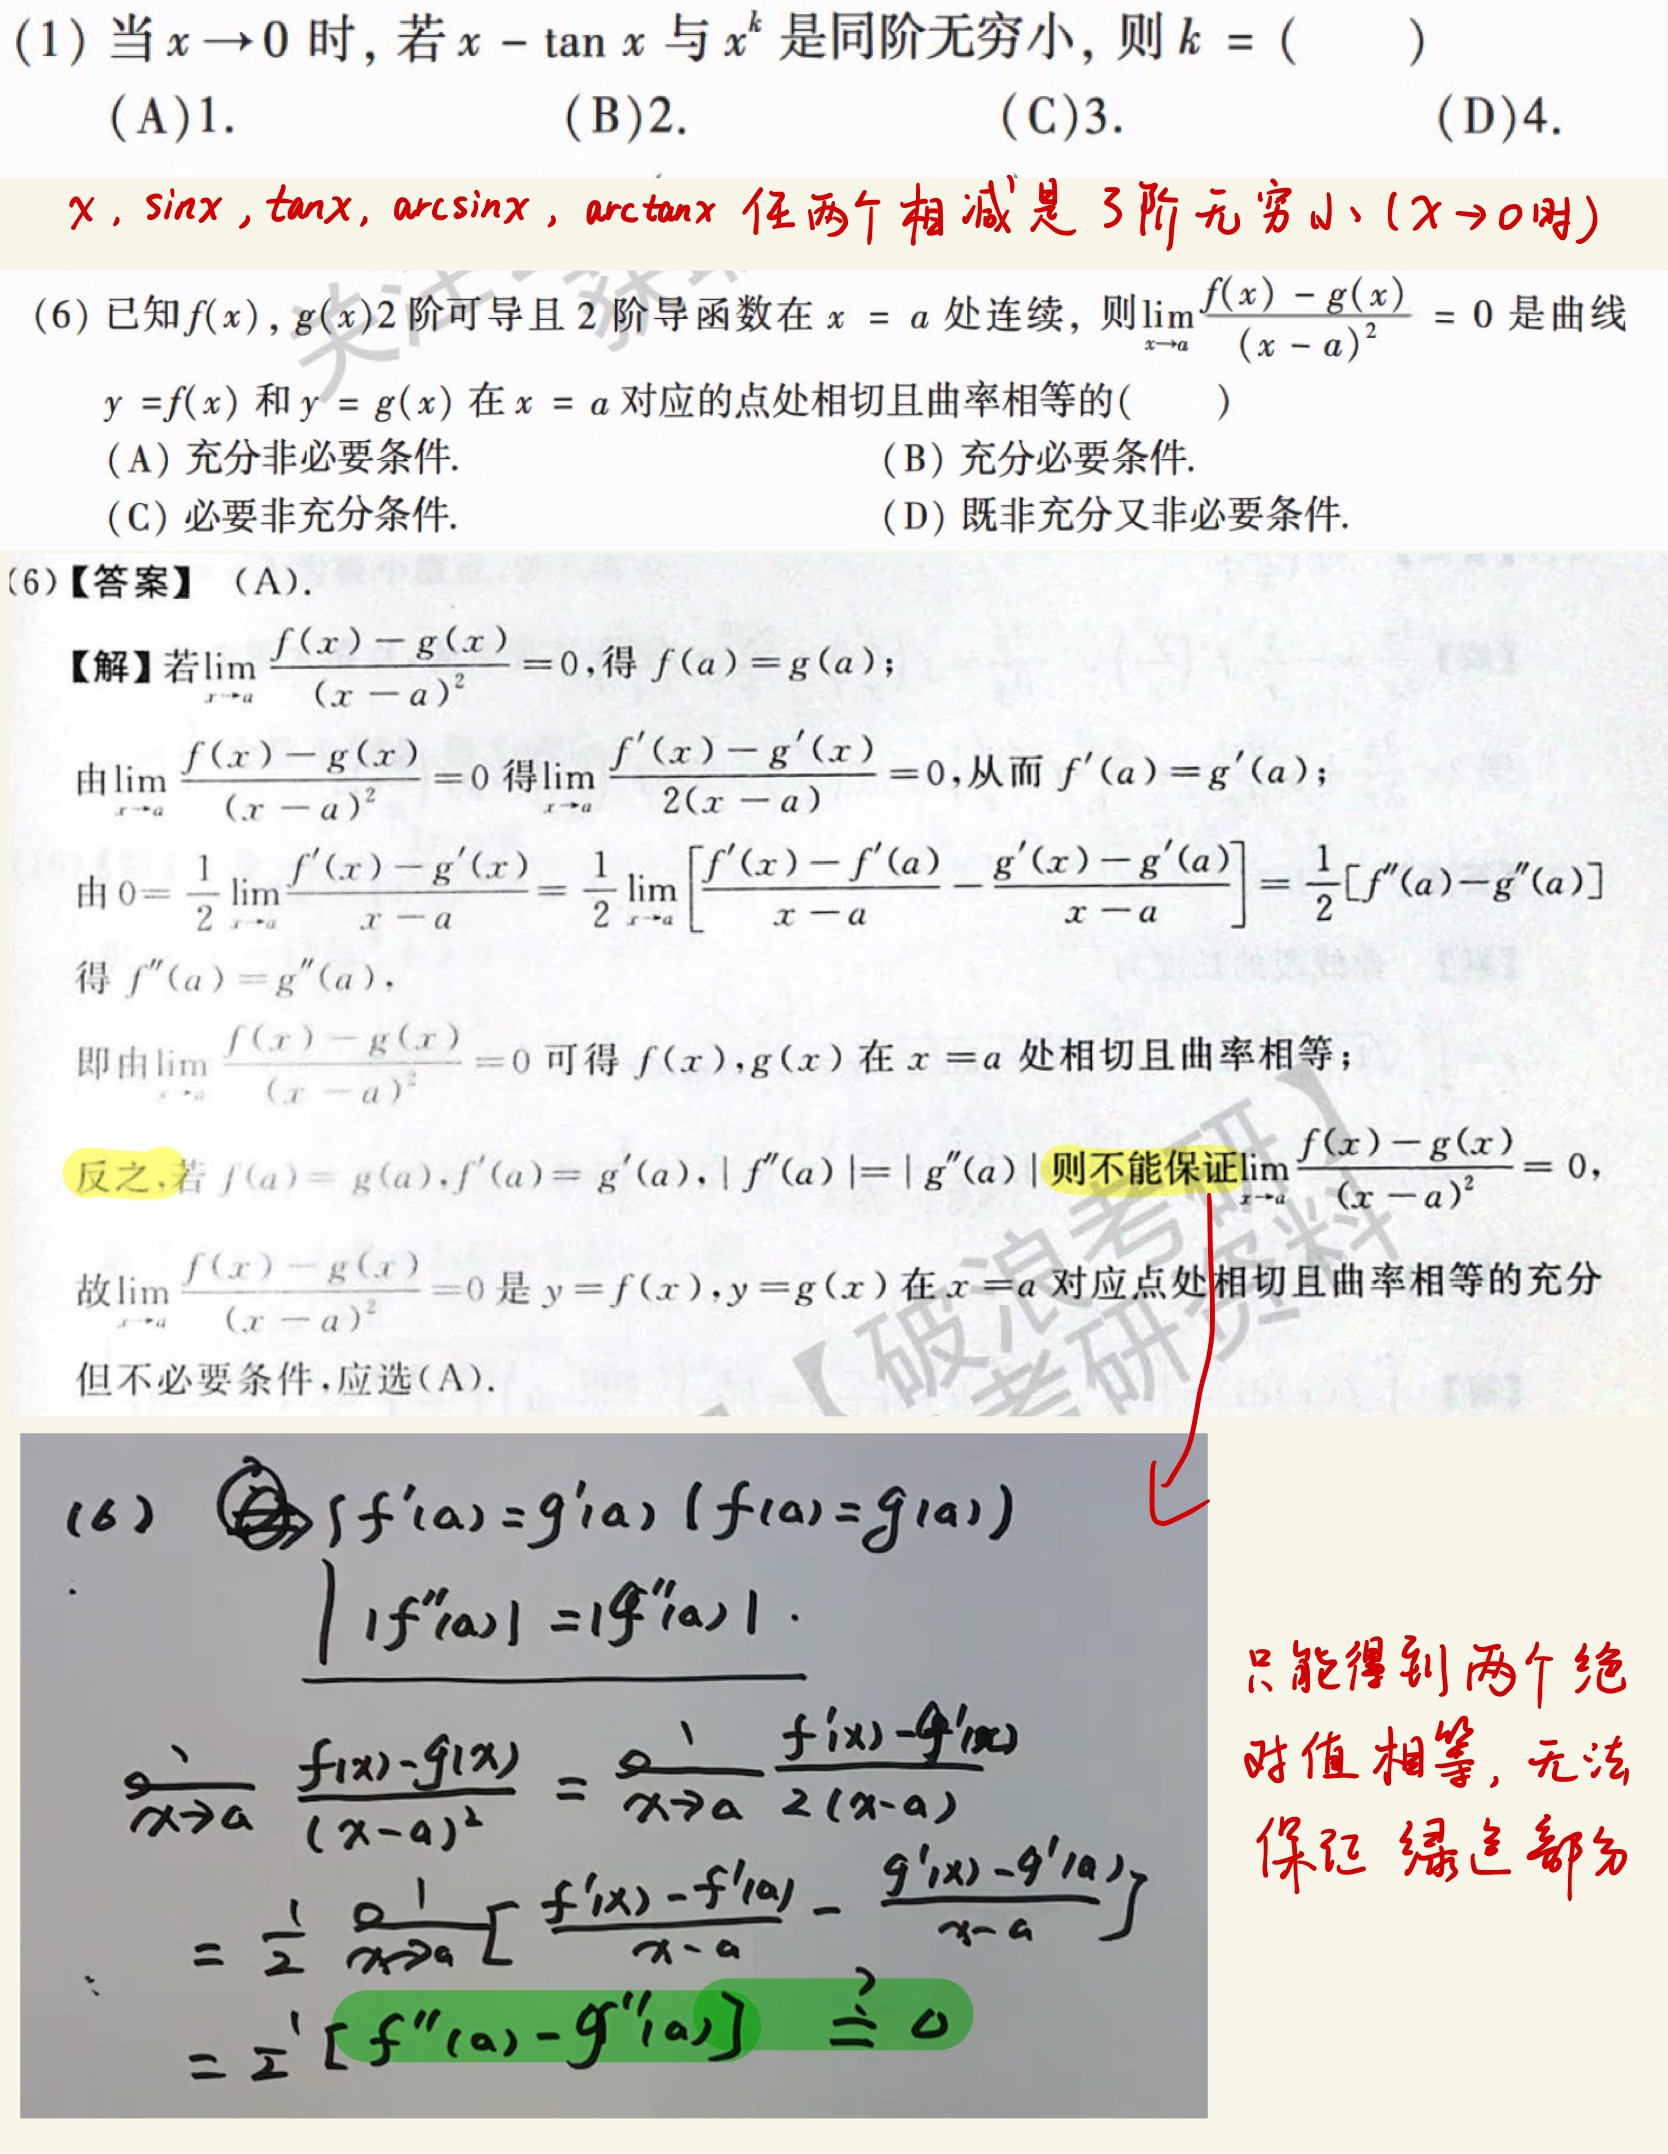 (1) 当 x→0 时, 若 x - tan x 与 x^k 是同阶无穷小, 则 k = (  )
(A)1. (B)2. (C)3. (D)4.
x, sinx, tanx, arcsinx, arctanx 任两个相减是 3阶无穷小 (x→0时)
(6) 已知 f(x), g(x)2 阶可导且 2 阶导函数在 x = a 处连续, 则 lim_{x→a} (f(x) - g(x))/(x - a)^2 = 0 是曲线
y = f(x) 和 y = g(x) 在 x = a 对应的点处相切且曲率相等的(  )
(A) 充分非必要条件. (B) 充分必要条件.
(C) 必要非充分条件. (D) 既非充分又非必要条件.
(6)【答案】 (A).
【解】若 lim_{x→a} (f(x)-g(x))/(x-a)^2 =0,得 f(a)=g(a);
由 lim_{x→a} (f(x)-g(x))/(x-a)^2 =0 得 lim_{x→a} (f′(x)-g′(x))/(2(x-a)) =0,从而 f′(a)=g′(a);
由 0= 1/2 lim_{x→a} (f′(x)-g′(x))/(x-a) = 1/2 lim_{x→a} [(f′(x)-f′(a))/(x-a) - (g′(x)-g′(a))/(x-a)] = 1/2 [f″(a)-g″(a)]
得 f″(a)=g″(a),
即由 lim_{x→a} (f(x)-g(x))/(x-a)^2 =0 可得 f(x),g(x) 在 x=a 处相切且曲率相等;
反之,若 f(a)=g(a),f′(a)=g′(a),|f″(a)|=|g″(a)| 则不能保证 lim_{x→a} (f(x)-g(x))/(x-a)^2 = 0,
故 lim_{x→a} (f(x)-g(x))/(x-a)^2 =0 是 y=f(x),y=g(x) 在 x=a 对应点处相切且曲率相等的充分
但不必要条件,应选(A).
【破浪考研】
考研资料
(6) { f′(a)=g′(a) (f(a)=g(a))
|f″(a)| = |g″(a)|.
lim_{x→a} (f(x)-g(x))/(x-a)^2 = lim_{x→a} (f′(x)-g′(x))/(2(x-a))
= 1/2 lim_{x→a} [(f′(x)-f′(a))/(x-a) - (g′(x)-g′(a))/(x-a)]
= 1/2 [f″(a)-g″(a)] ?= 0
只能得到两个绝
对值相等, 无法
保证 绿色部分